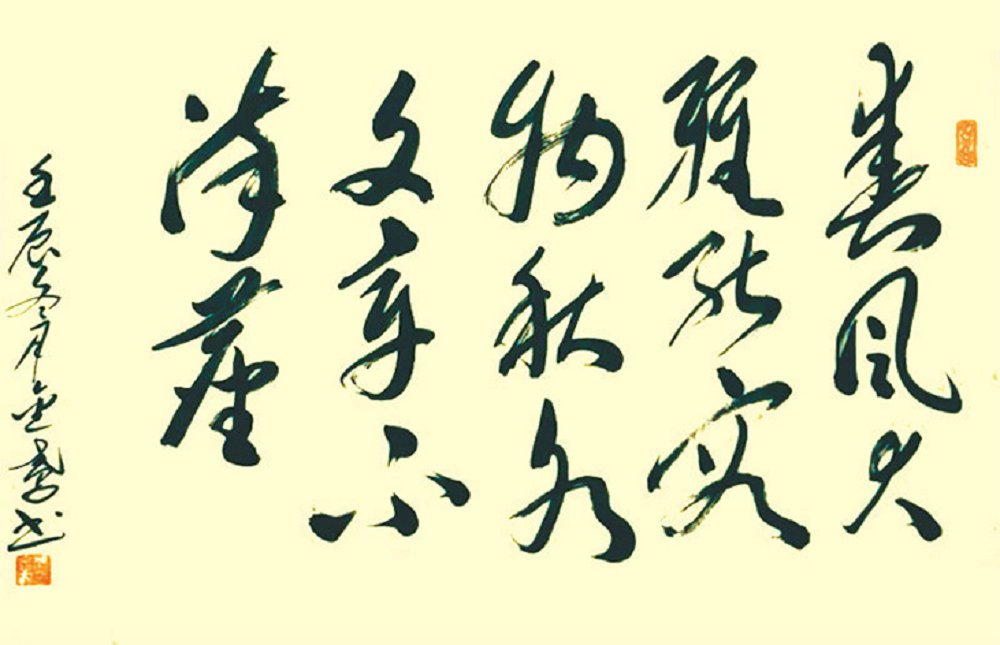 春風大
雅能容
物秋水
文章不
染塵
壬辰冬月